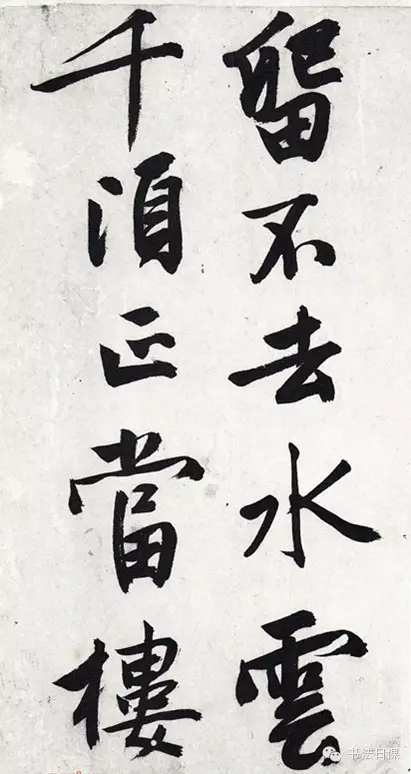 留不去水雲
千頃正當樓
书法日课